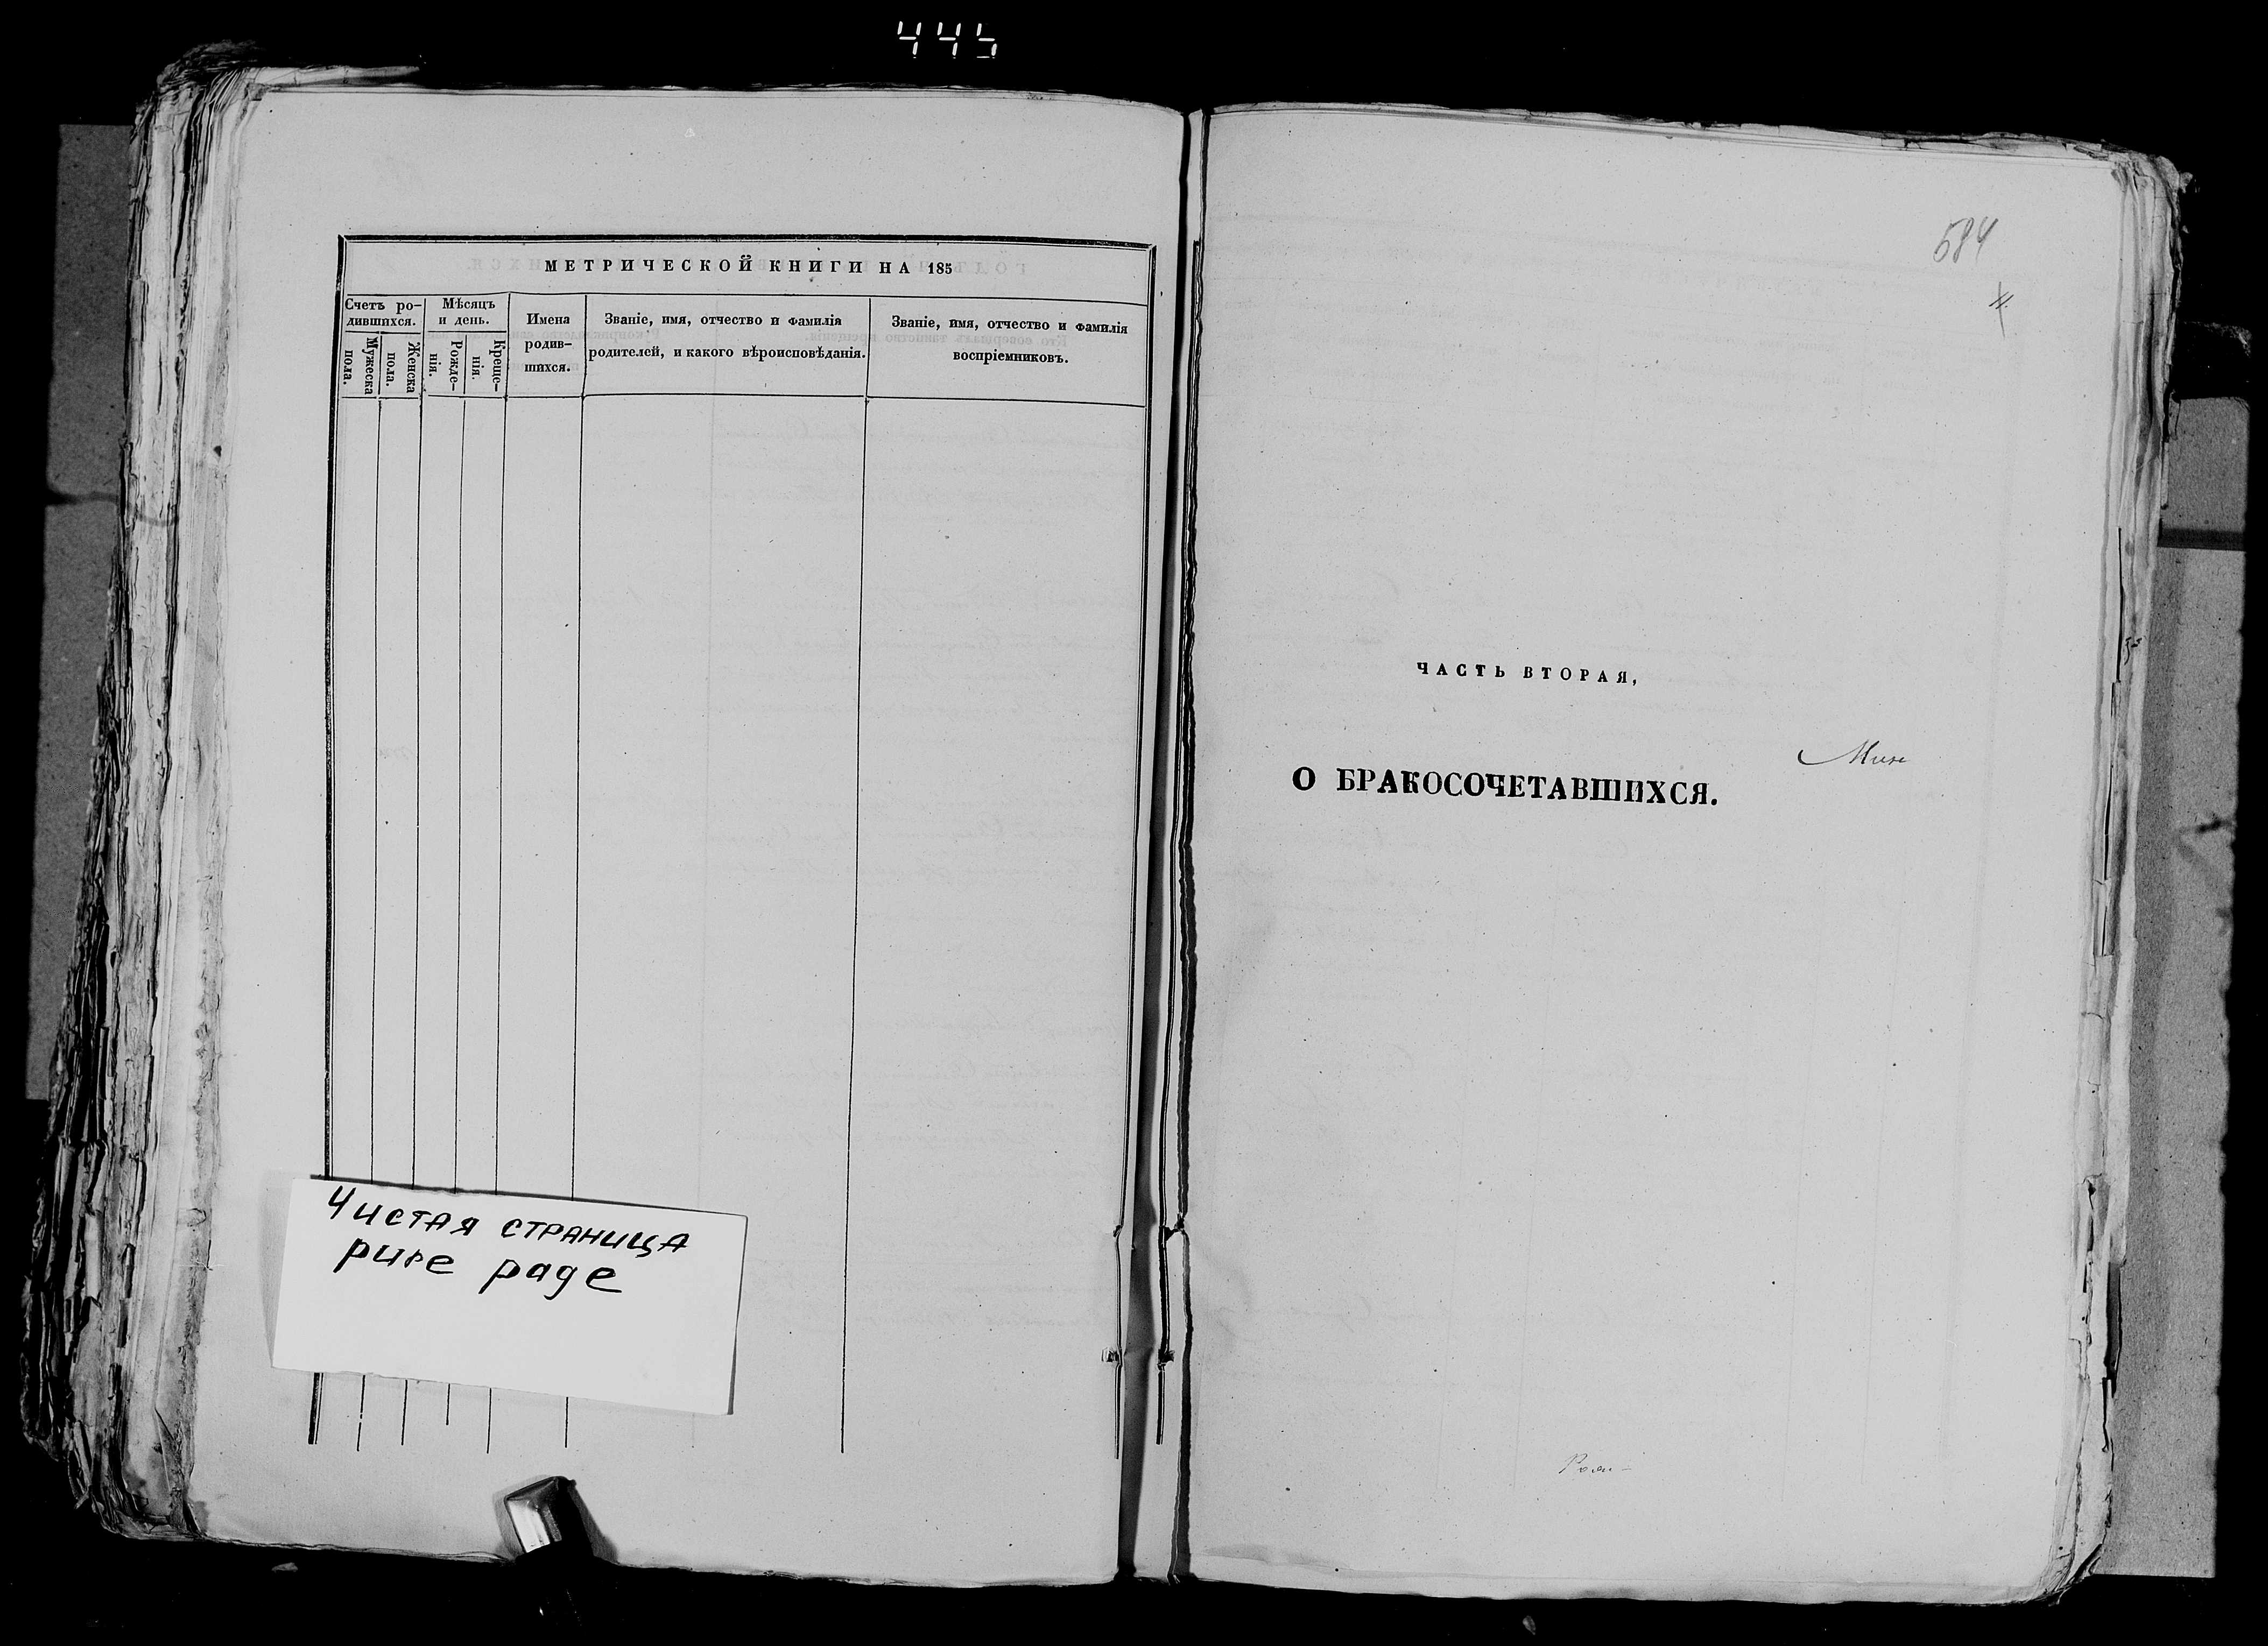 445
МЕТРИЧЕСКОЙ КНИГИ НА 185
Счетъ ро-
дившихся.
Мужеска
пола.
Женска
пола.
Мѣсяцъ
и день.
Рожде-
нія.
Креще-
нія.
Имена
родив-
шихся.
Званіе, имя, отчество и фамилія
родителей, и какого вѣроисповѣданія.
Званіе, имя, отчество и фамилія
воспріемниковъ.
Чистая страница
pure page
584
ЧАСТЬ ВТОРАЯ,
О БРАКОСОЧЕТАВШИХСЯ.